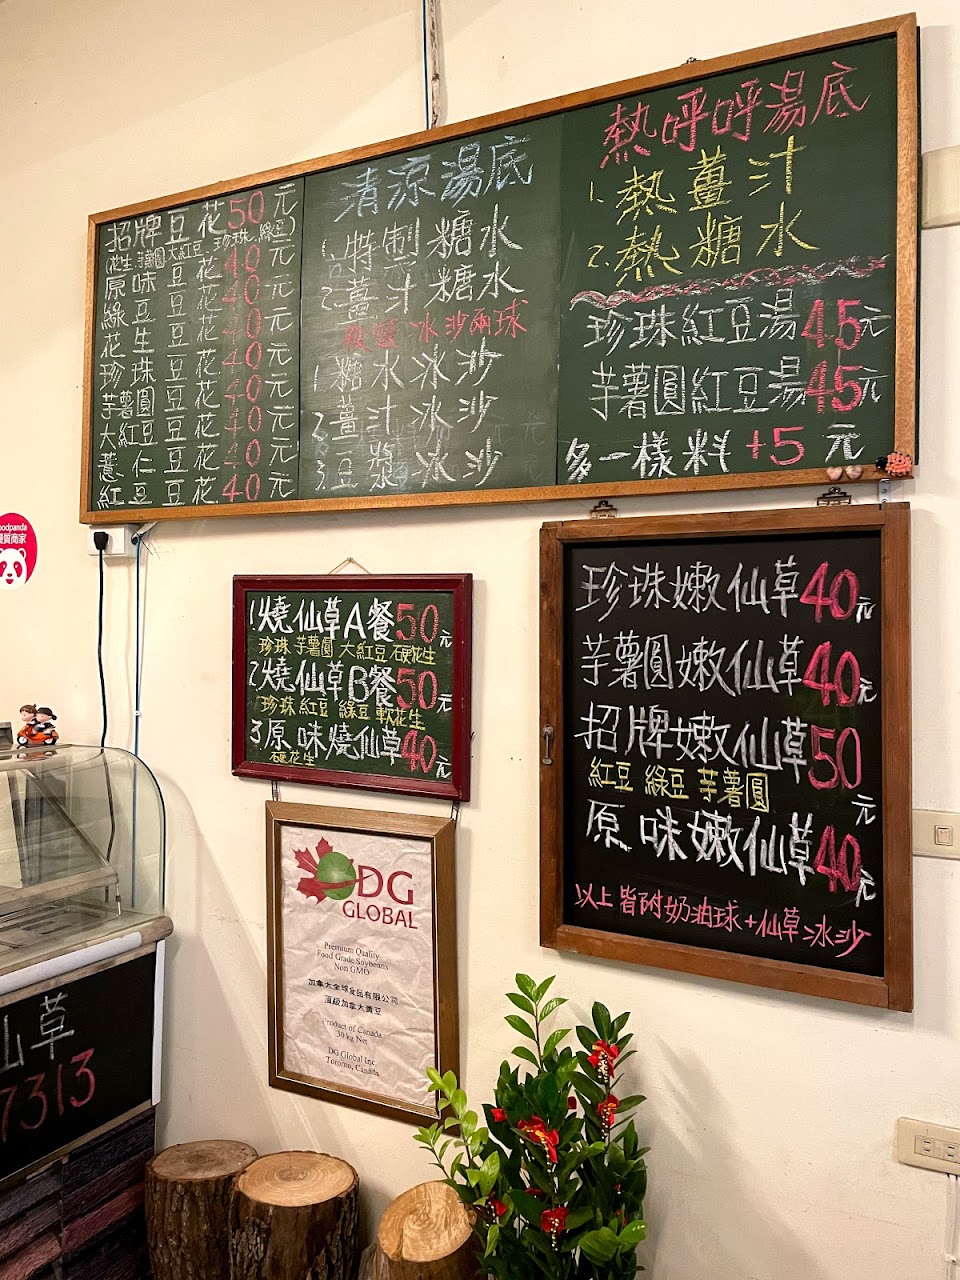 招牌豆花50元
(花生.芋薯圓.大紅豆.珍珠.綠豆)
原味豆花40元
綠豆豆花40元
花生豆花40元
珍珠豆花40元
芋薯圓豆花40元
大紅豆豆花40元
薏仁豆花40元
紅豆豆花40元
清涼湯底
1.特製糖水
2.薑汁糖水
冰沙兩球
1.糖水冰沙
2.薑汁冰沙
3.豆漿冰沙
熱呼呼湯底
1.熱薑汁
2.熱糖水
珍珠紅豆湯45元
芋薯圓紅豆湯45元
多一樣料+5元
foodpanda
優質商家
1燒仙草A餐50元
珍珠 芋薯圓 大紅豆 硬花生
2燒仙草B餐50元
珍珠 紅豆 綠豆 軟花生
3原味燒仙草40元
硬花生
珍珠嫩仙草40元
芋薯圓嫩仙草40元
招牌嫩仙草50元
紅豆 綠豆 芋薯圓
原味嫩仙草40元
以上皆附奶油球+仙草冰沙
DG
GLOBAL
Premium Quality
Food Grade Soybeans
Non GMO
加拿大全球食品有限公司
頂級加拿大黃豆
Product of Canada
30 kg Net
DG Global Inc.
Toronto, Canada
仙草
7313